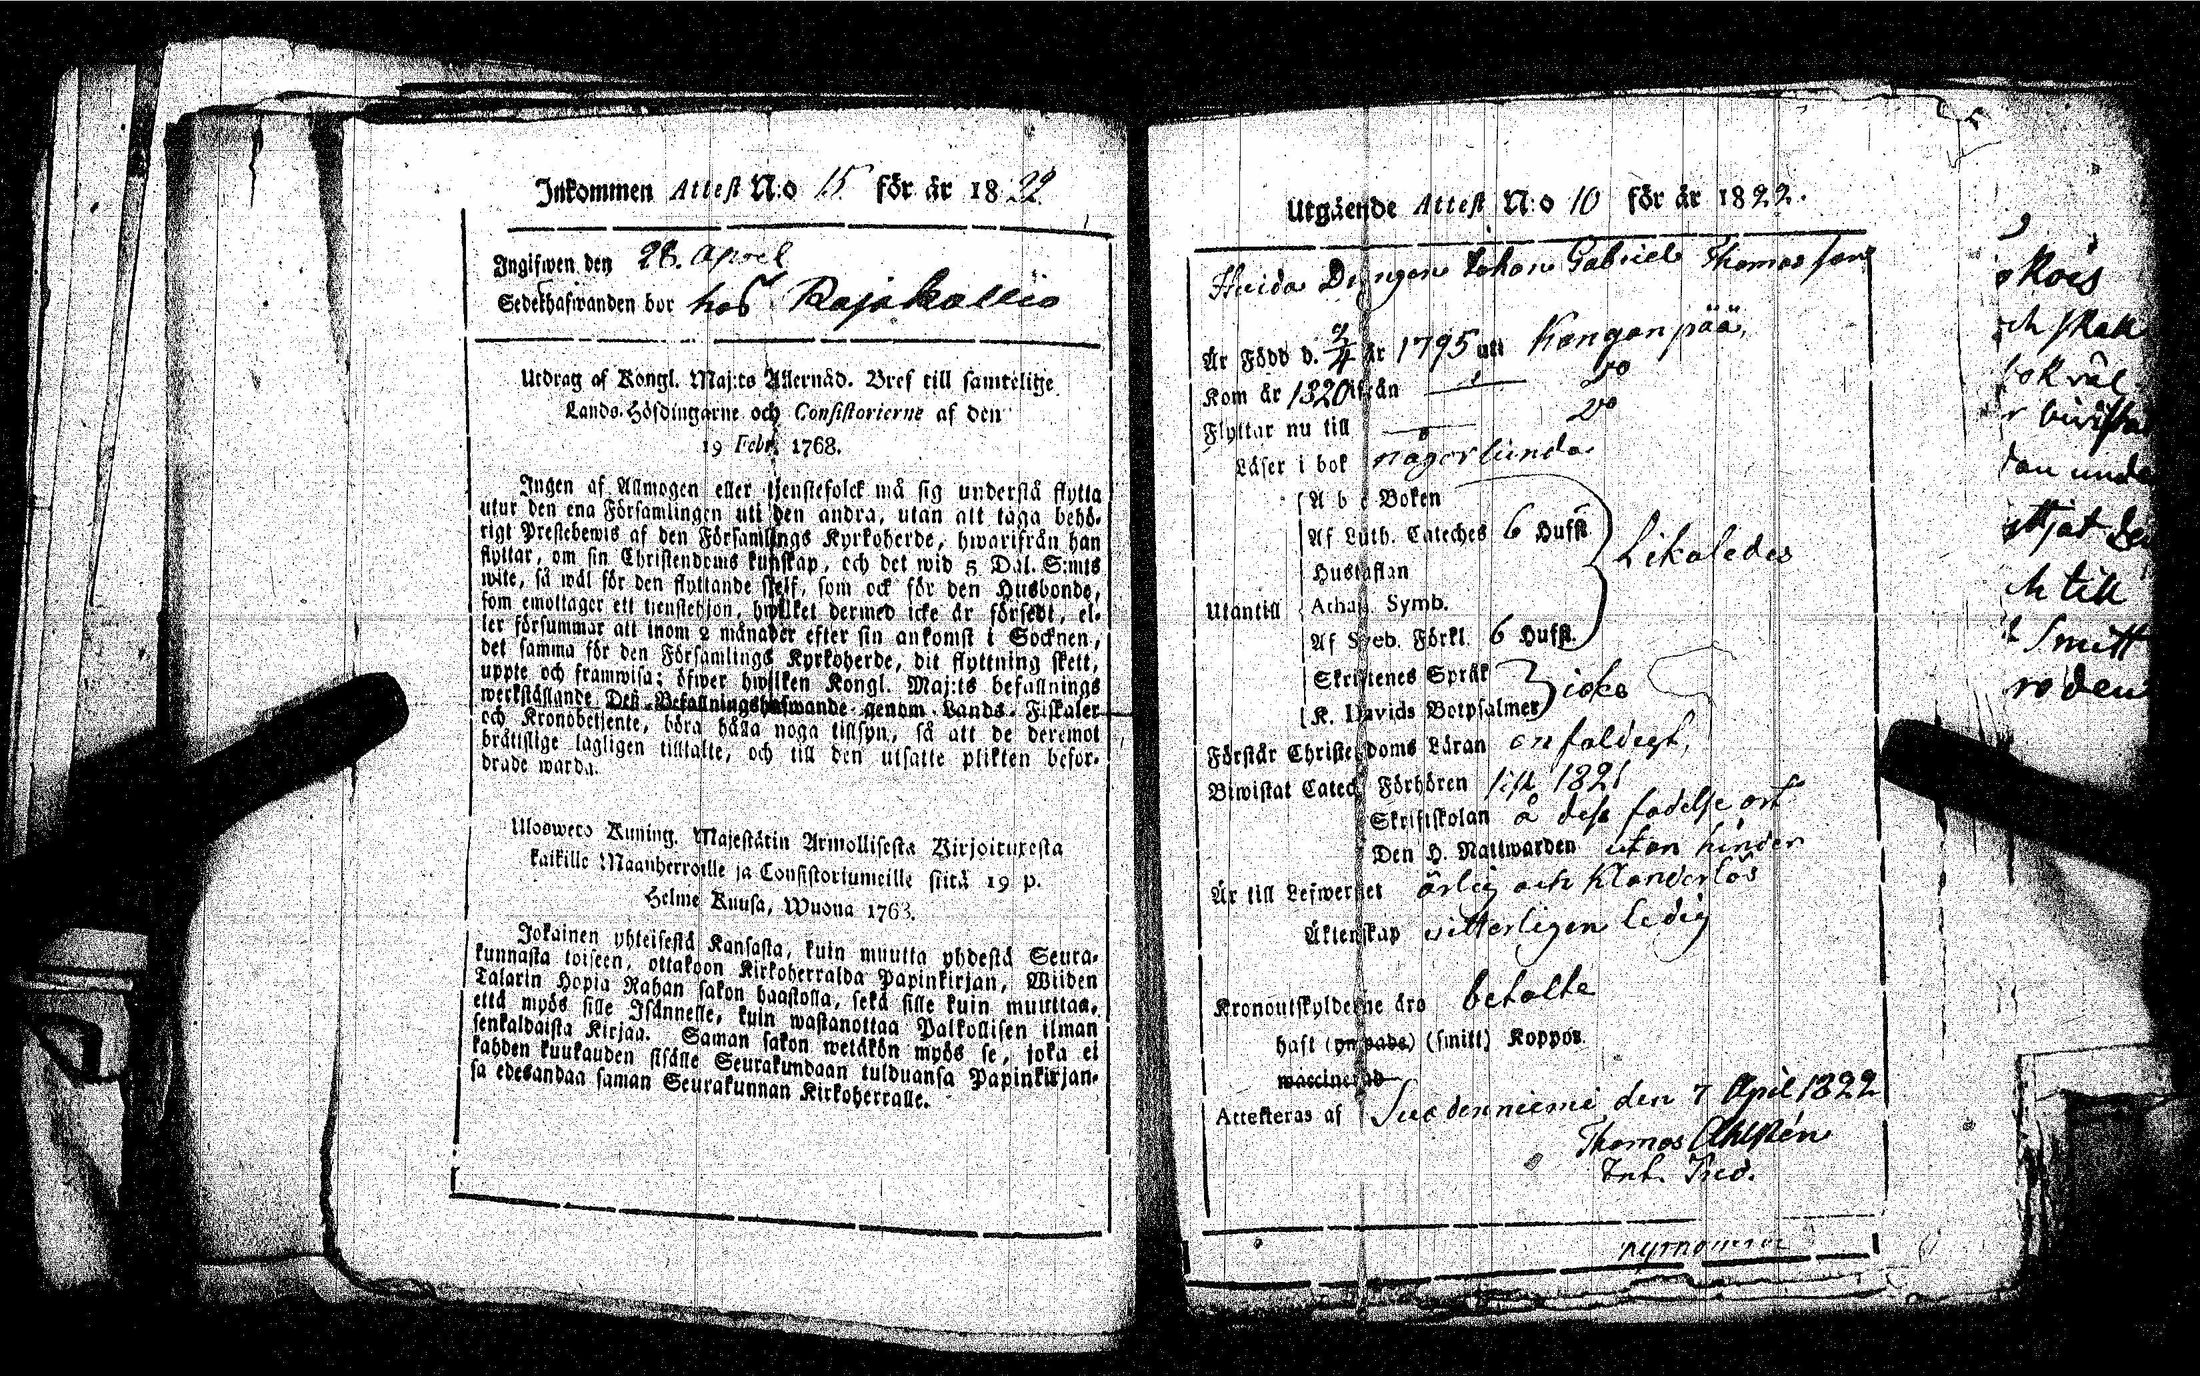 Inkommen Attest N:o 15 för år 1822.
Ingifwen den 28. April
Sedelhafwanden bor hos Rajakallio
Utdrag af Kongl. Maj:ts Allernåd. Bref till samtelige
Lands-Höfdingarne och Consistorierne af den
19 Febr. 1768.
Ingen af Allmogen eller tjenstefolck må sig understå flytta
utur den ena Församlingen uti den andra, utan att taga behö-
rigt Prestebewis af den Församlings Kyrkoherde, hwarifrån han
flyttar, om sin Christendoms kunskap, och det wid 5 Dal. S:mts
wite, så wäl för den flyttande sjelf, som ock för den Husbonde,
som emottager ett tienstehjon, hwilket dermed icke är försedt, el-
ler försummar att inom 2 månader efter sin ankomst i Socknen,
det samma för den Församlings Kyrkoherde, dit flyttning skett,
uppte och framwisa; öfwer hwilken Kongl. Maj:ts befallnings
werkställande Deß Befallningshafwande genom Lands-Fiskaler
och Kronobetjente, böra hålla noga tillsyn, så att de deremot
brätislige lagligen tilltalte, och till den utsatte plikten befor-
drade warda.
Uloswero Kuning. Majestätin Armollisesta Kirjoituxesta
kaikille Maanherroille ja Consistoriumeille siitä 19 p.
Helme Kuusa, Wuona 1768.
Jokainen yhteisestä Kansasta, kuin muutta yhdestä Seura-
kunnasta toiseen, ottakoon Kirkoherralda Papinkirjan, Wiiden
Talarin Hopia Rahan sakon haastolla, sekä sille kuin muuttaa,
että myös sille Isännelle, kuin wastanottaa Palkollisen ilman
senkaldaista Kirjaa. Saman sakon wetäkön myös se, joka ei
kahden kuukauden sisälle Seurakundaan tulduansa Papinkirjan-
sa edesandaa saman Seurakunnan Kirkoherralle.
Utgående Attest N:o 10 för år 1822.
Drengen Johan Gabriel Thomas son
Är Född d. 2/4 år 1795 uti Kangan pää,
Kom år 1820 ifrån
Flyttar nu till
Läser i bok någorlunda
Utantill
A b c Boken
Af Luth. Cateches 6 Hufst
Hustaflan
Athan. Symb.
Af Sveb. Förkl. 6 Hufst.
Likaledes
Skriftenes Språk
K. Davids Botpsalmer
icke
Förstår Christendoms Läran enfaldigt,
Biwistat Catech. Förhören sist 1821
Skriftskolan å dess födelse ort
Den H. Nattwarden utan hinder
Är till Lefwernet ärlig och klanderlös
Äktenskap vitterligen ledig
Kronoutskylderne äro betalte
haft (on wade) (smitt) Koppor.
waccinerad
Attesteras af Suodenniemi den 7 April 1822
Thomas Ahlstén